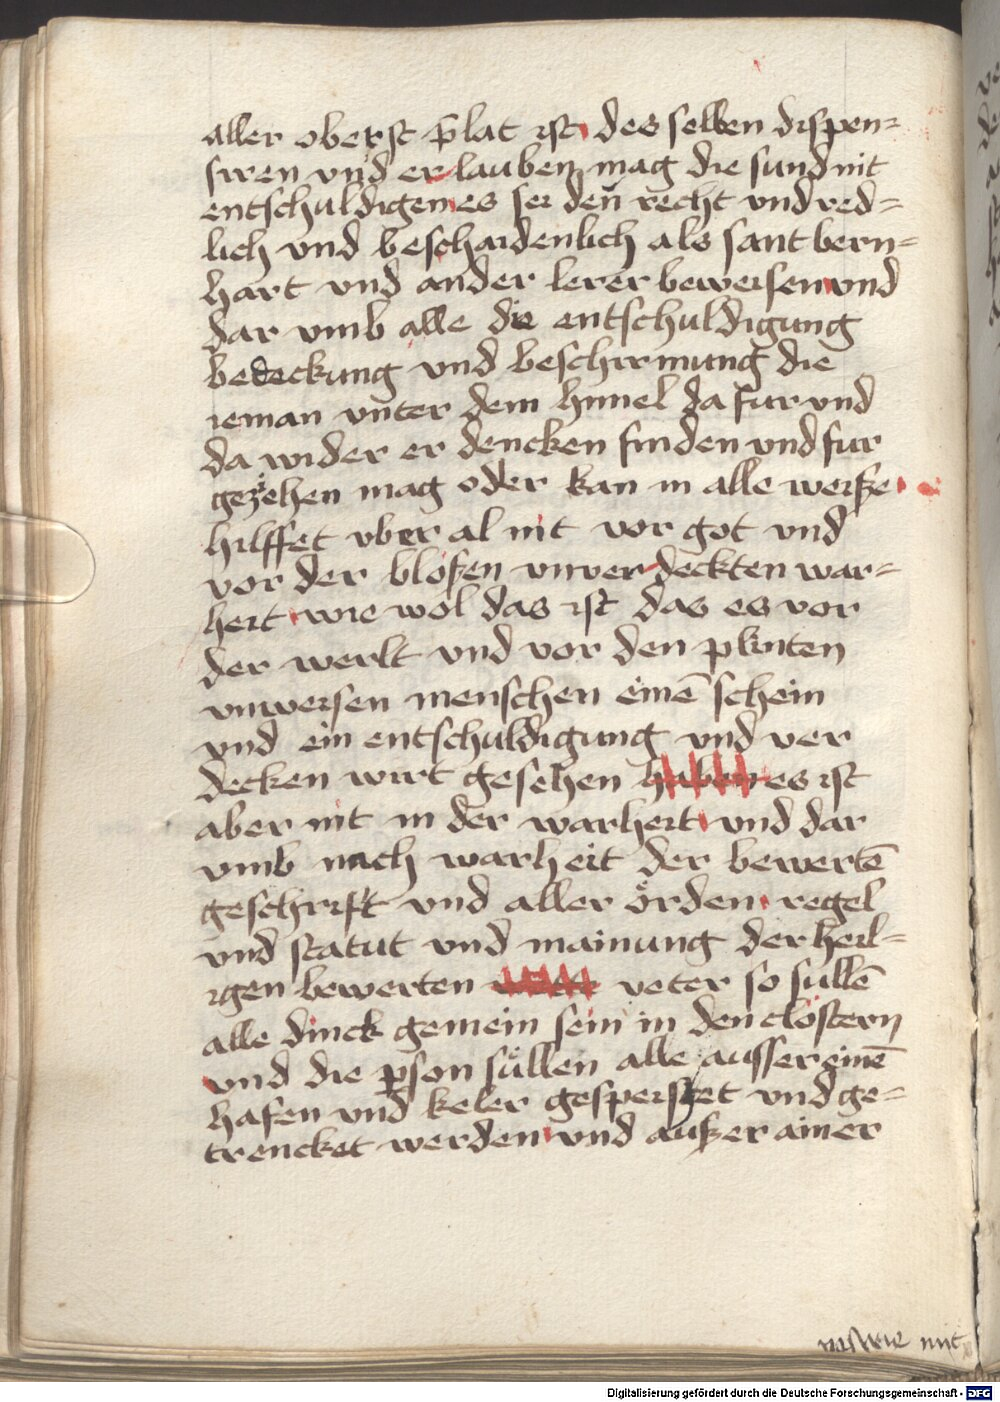 aller oberst p̄lat ist des selben dispen=
siren vnd erlauben mag die sund nit
entschuldigen es sei den̄ recht vnd red=
lich vnd beschaidenlich als sant bern=
hart vnd ander lerer beweisen vnd
dar vmb alle die entschuldigung
bedeckung vnd beschirmung die
ieman vnter dem himel da fur vnd
da wider er dencken finden vnd fur
gezẻhen mag oder kan in alle weiße
hilffet vber al nit vor got vnd
vor der bloßen vnverdeckten war=
heit wie wol das ist das es vor
der werlt vnd vor den plinten
vnweisen menschen einē schein
vnd ein entschuldigung vnd ver
decken wirt gesehen haben es ist
aber nit in der warheit vnd dar
vmb nach warheit der bewertē
geschrift vnd aller örden regel
vnd statut vnd mainung der heil=
igen bewerten veter so sullē
alle dinck gemein sein in den clostern
vnd die p̱son süllen alle ausser einē
hafen vnd keler gespeiset vnd ge=
trencket werden vnd außer ainer
nit
Digitalisierung gefördert durch die Deutsche Forschungsgemeinschaft - DFG